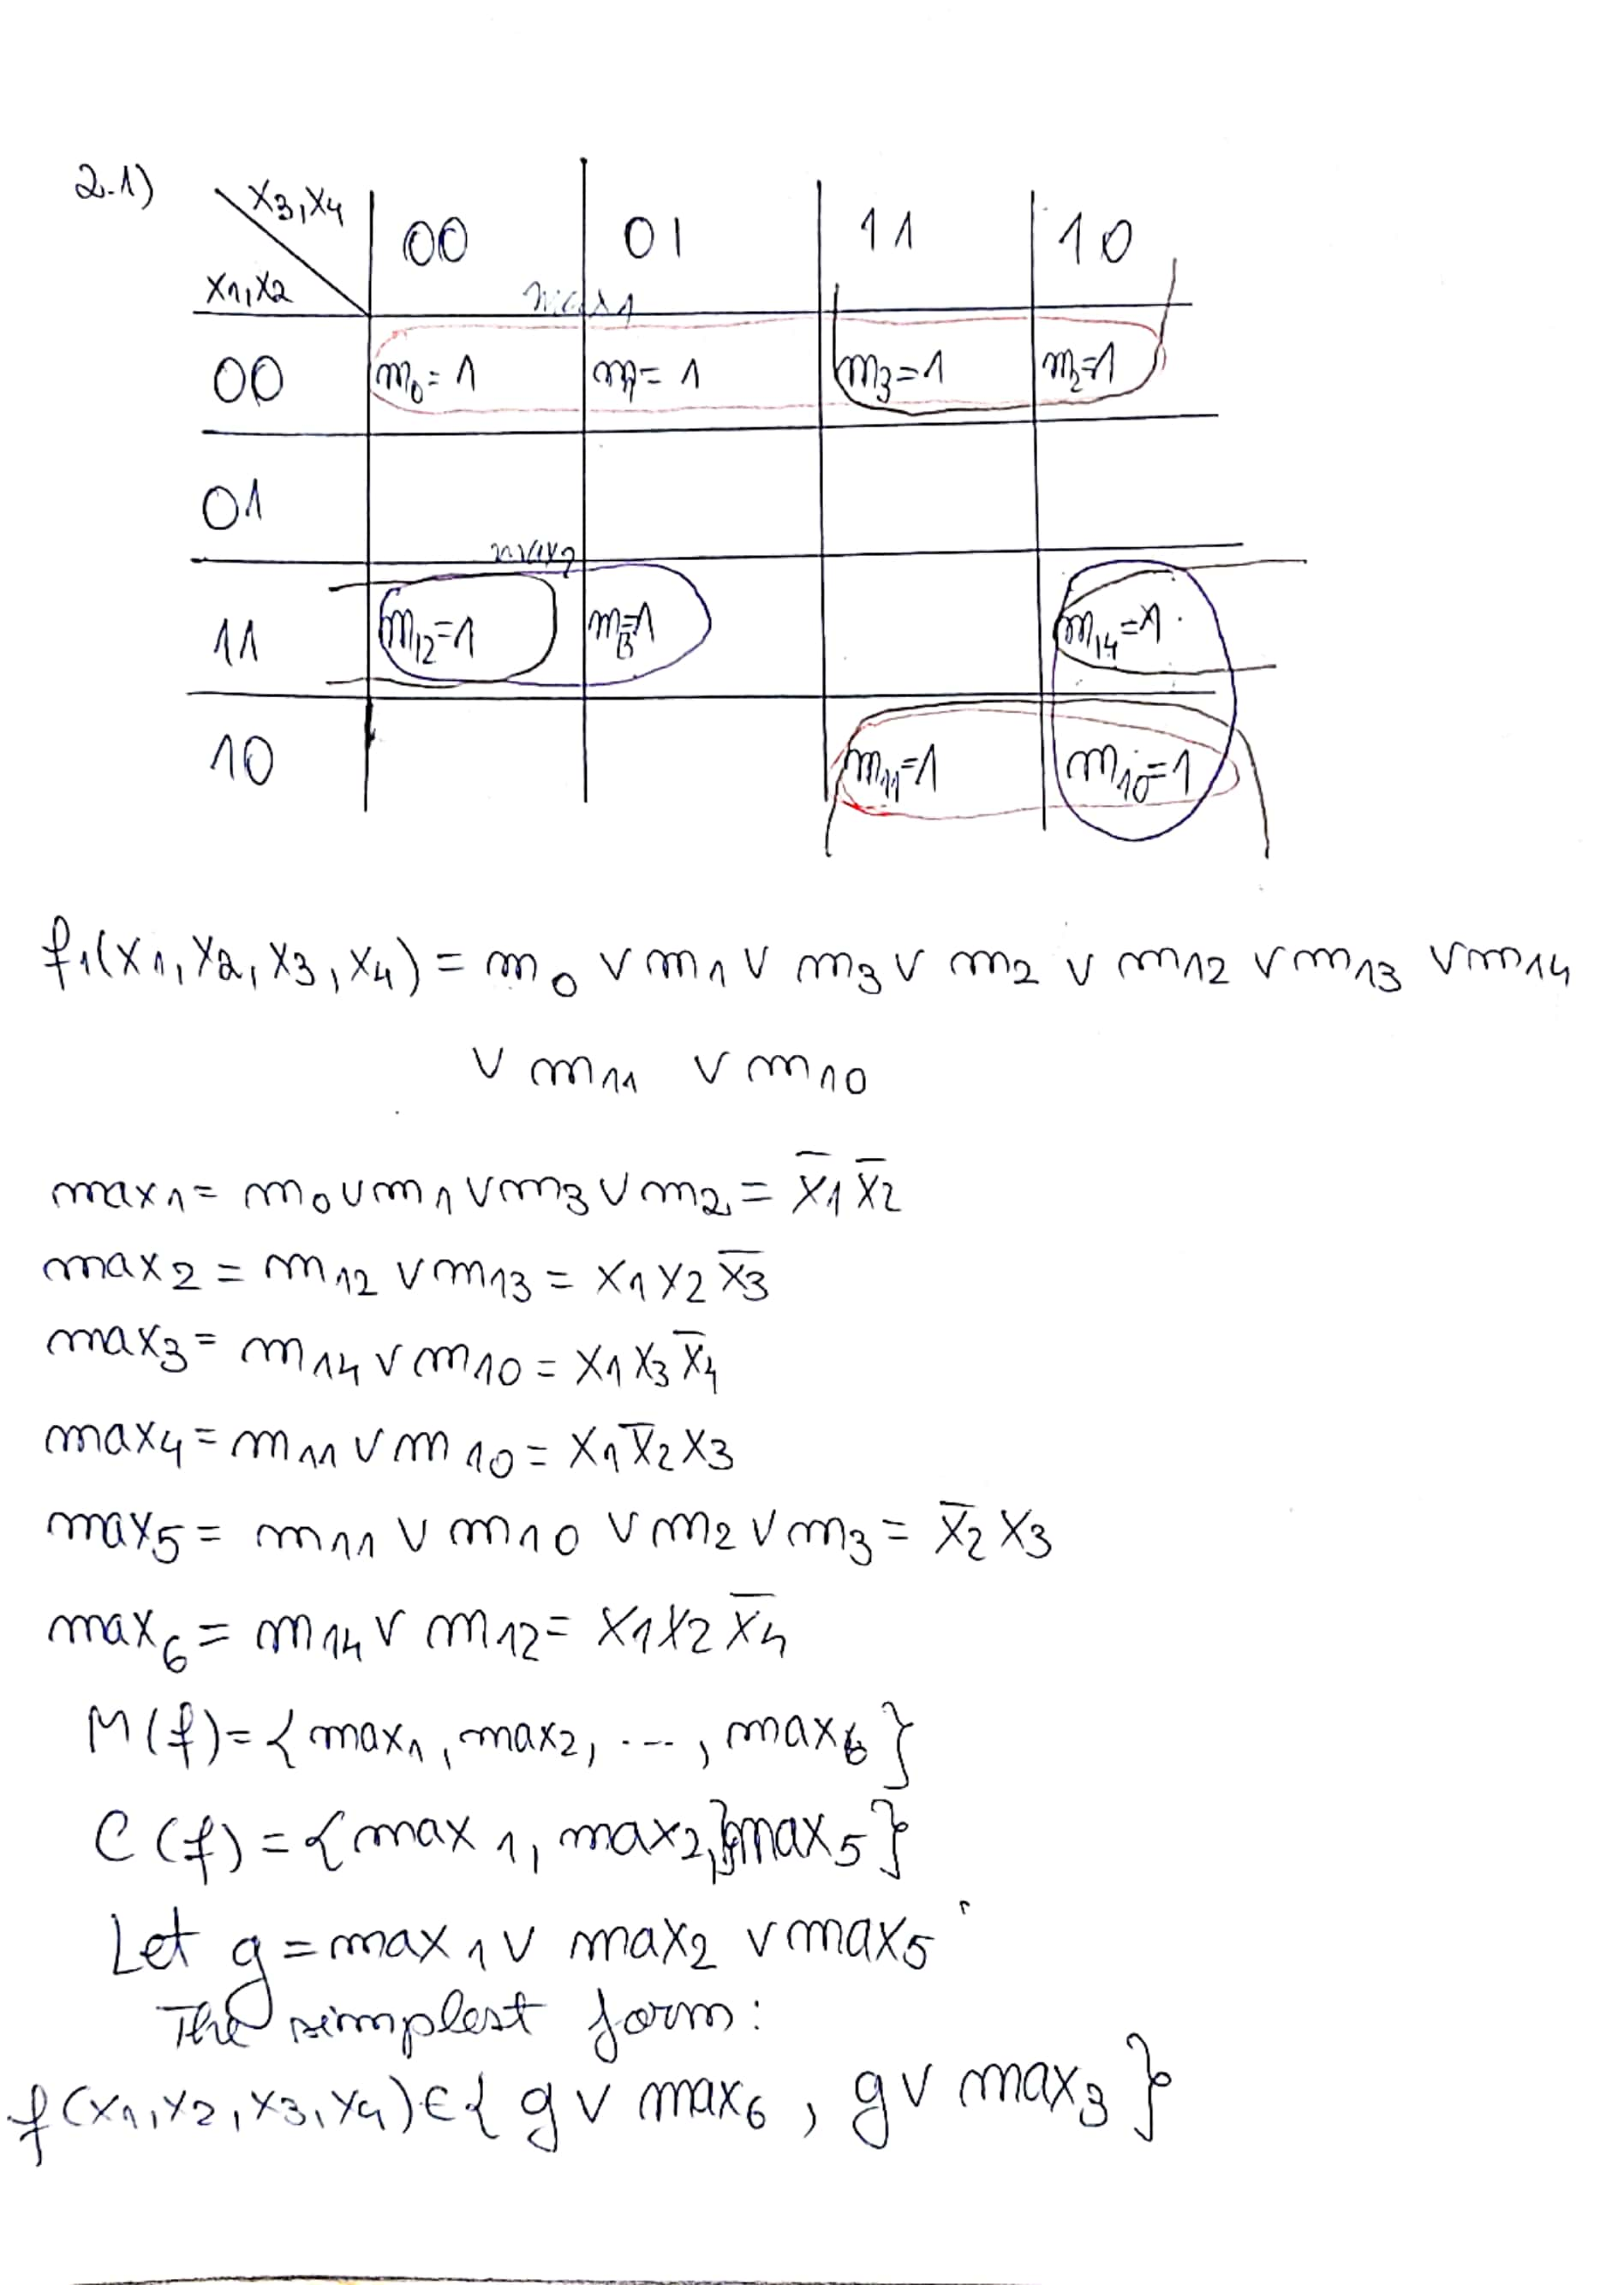 2.1)
x3,x4 00 01 11 10
x1,x2
max1
00 m0=1 m1=1 m3=1 m2=1
01
max2
11 m12=1 m13=1 m14=1
10 m11=1 m10=1
f1(x1,x2,x3,x4) = m0 ∨ m1 ∨ m3 ∨ m2 ∨ m12 ∨ m13 ∨ m14
∨ m11 ∨ m10
max1 = m0 ∨ m1 ∨ m3 ∨ m2 = x̄1 x̄2
max2 = m12 ∨ m13 = x1 x2 x̄3
max3 = m14 ∨ m10 = x1 x3 x̄4
max4 = m11 ∨ m10 = x1 x̄2 x3
max5 = m11 ∨ m10 ∨ m2 ∨ m3 = x̄2 x3
max6 = m14 ∨ m12 = x1 x2 x̄4
M(f) = {max1, max2, ..., max6}
C(f) = {max1, max2,} max5}
Let g = max1 ∨ max2 ∨ max5
The simplest form:
f(x1,x2,x3,x4) ∈ {g ∨ max6, g ∨ max3}